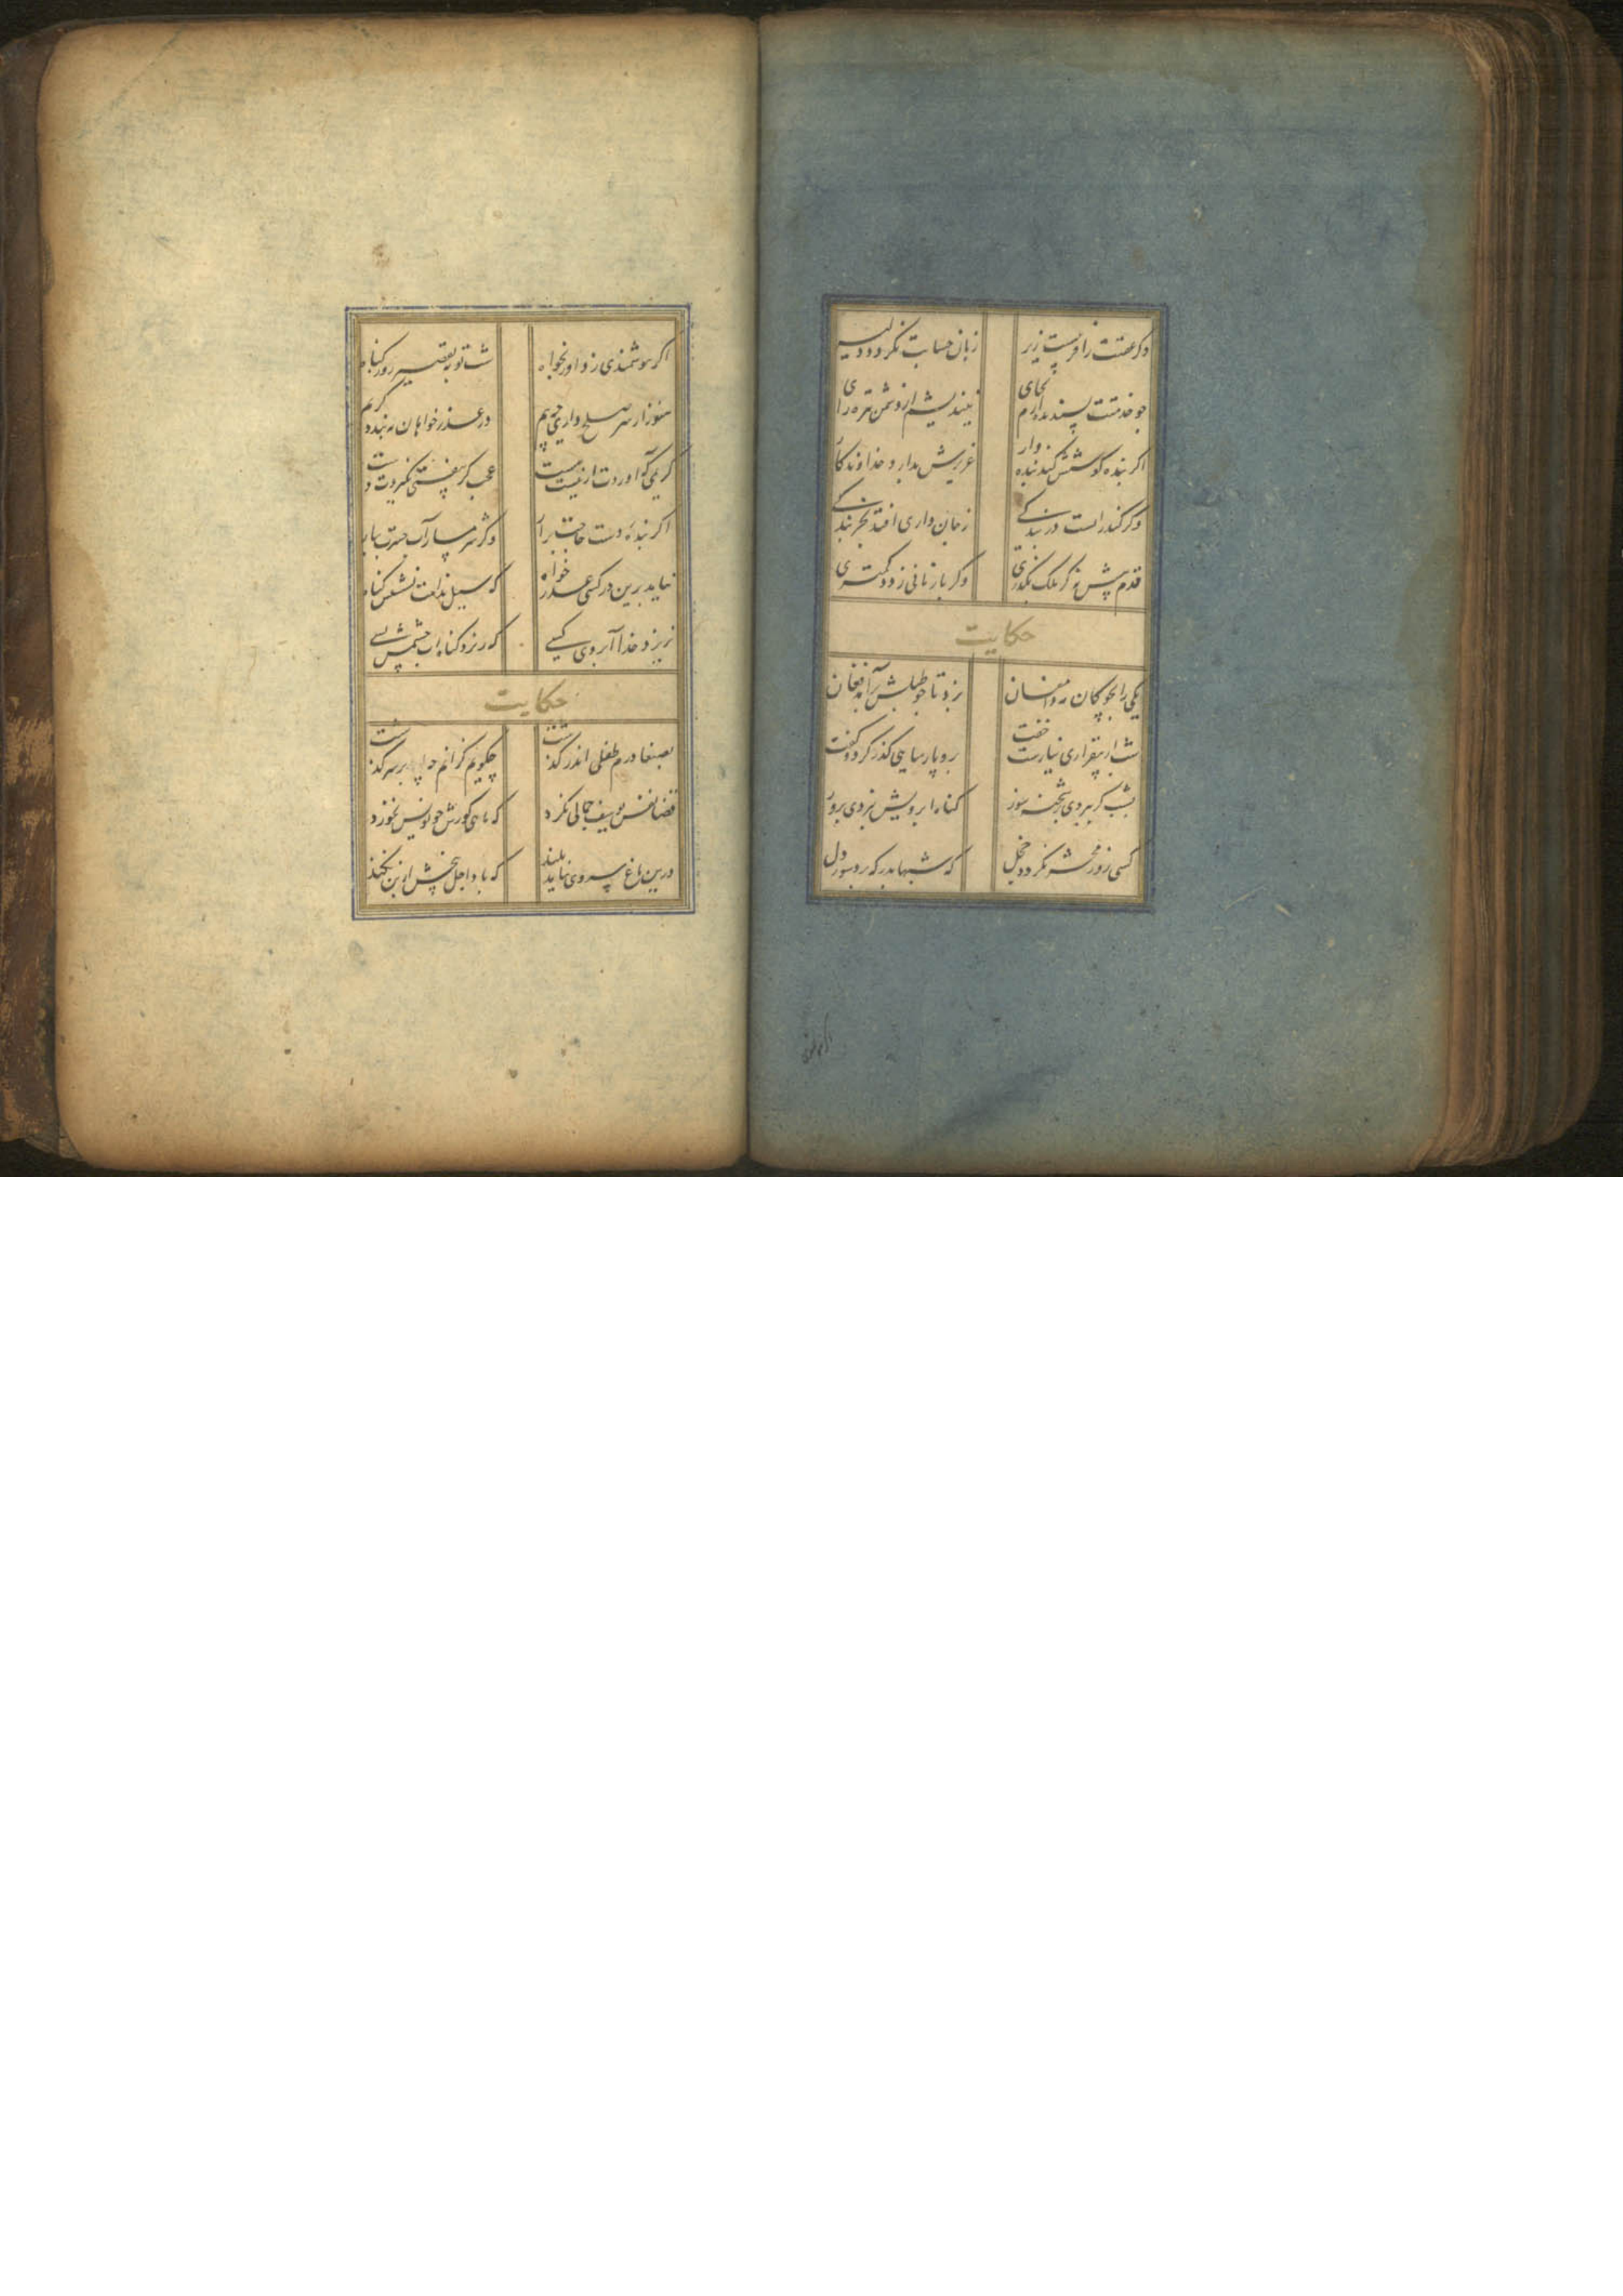 وکر عفتت را فریبست زیر زبان حسابت نکردد دلیر
چو خدمت پسندیده آرم بجای نیندیشم از دشمن تیره رای
اکر بنده کوشش کند بنده وار عزیزش بدارد خداوندکار
وکر کند راست در بندکی ز جان داری افتد بخربندکی
قدم پیش نه کز ملک بکذری وکر باز مانی ز دد کمتری
حکایت
یکی را بچوکان مه دامغان بزد تا چو طبلش برآمد فغان
شب از بیقراری نیارست خفت برو پارسایی کذر کرد و کفت
بشب کر ببردی بر شحنه سوز کناه آبرویش نبردی بروز
کسی روز محشر نکردد خجل که شبها بدرکه برد سوز دل
اکر هوشمندی ز داور بخواه شب توبه تقصیر روز کناه
هنوز ار سر صلح داری چه بیم در عذر خواهان نبندد کریم
کریمی که آوردت از نیست هست عجب کر بیفتی نکیردت دست
اکر بنده دست حاجت برآر وکر شرمسار آب حسرت ببار
نیاید برین در کسی عذر خواه که سیل ندامت نشستش کناه
نریزد خدا آبروی کسی که ریزد کناه آب چشمش بسی
حکایت
بصنعا درم طفلی اندر کذشت چکویم کزانم چه بر سر کذشت
قضا نقش یوسف جمالی نکرد که ماهی کورش چو یونس نخورد
درین باغ سروی نیامد بلند که باد اجل بیخش از بن نکند